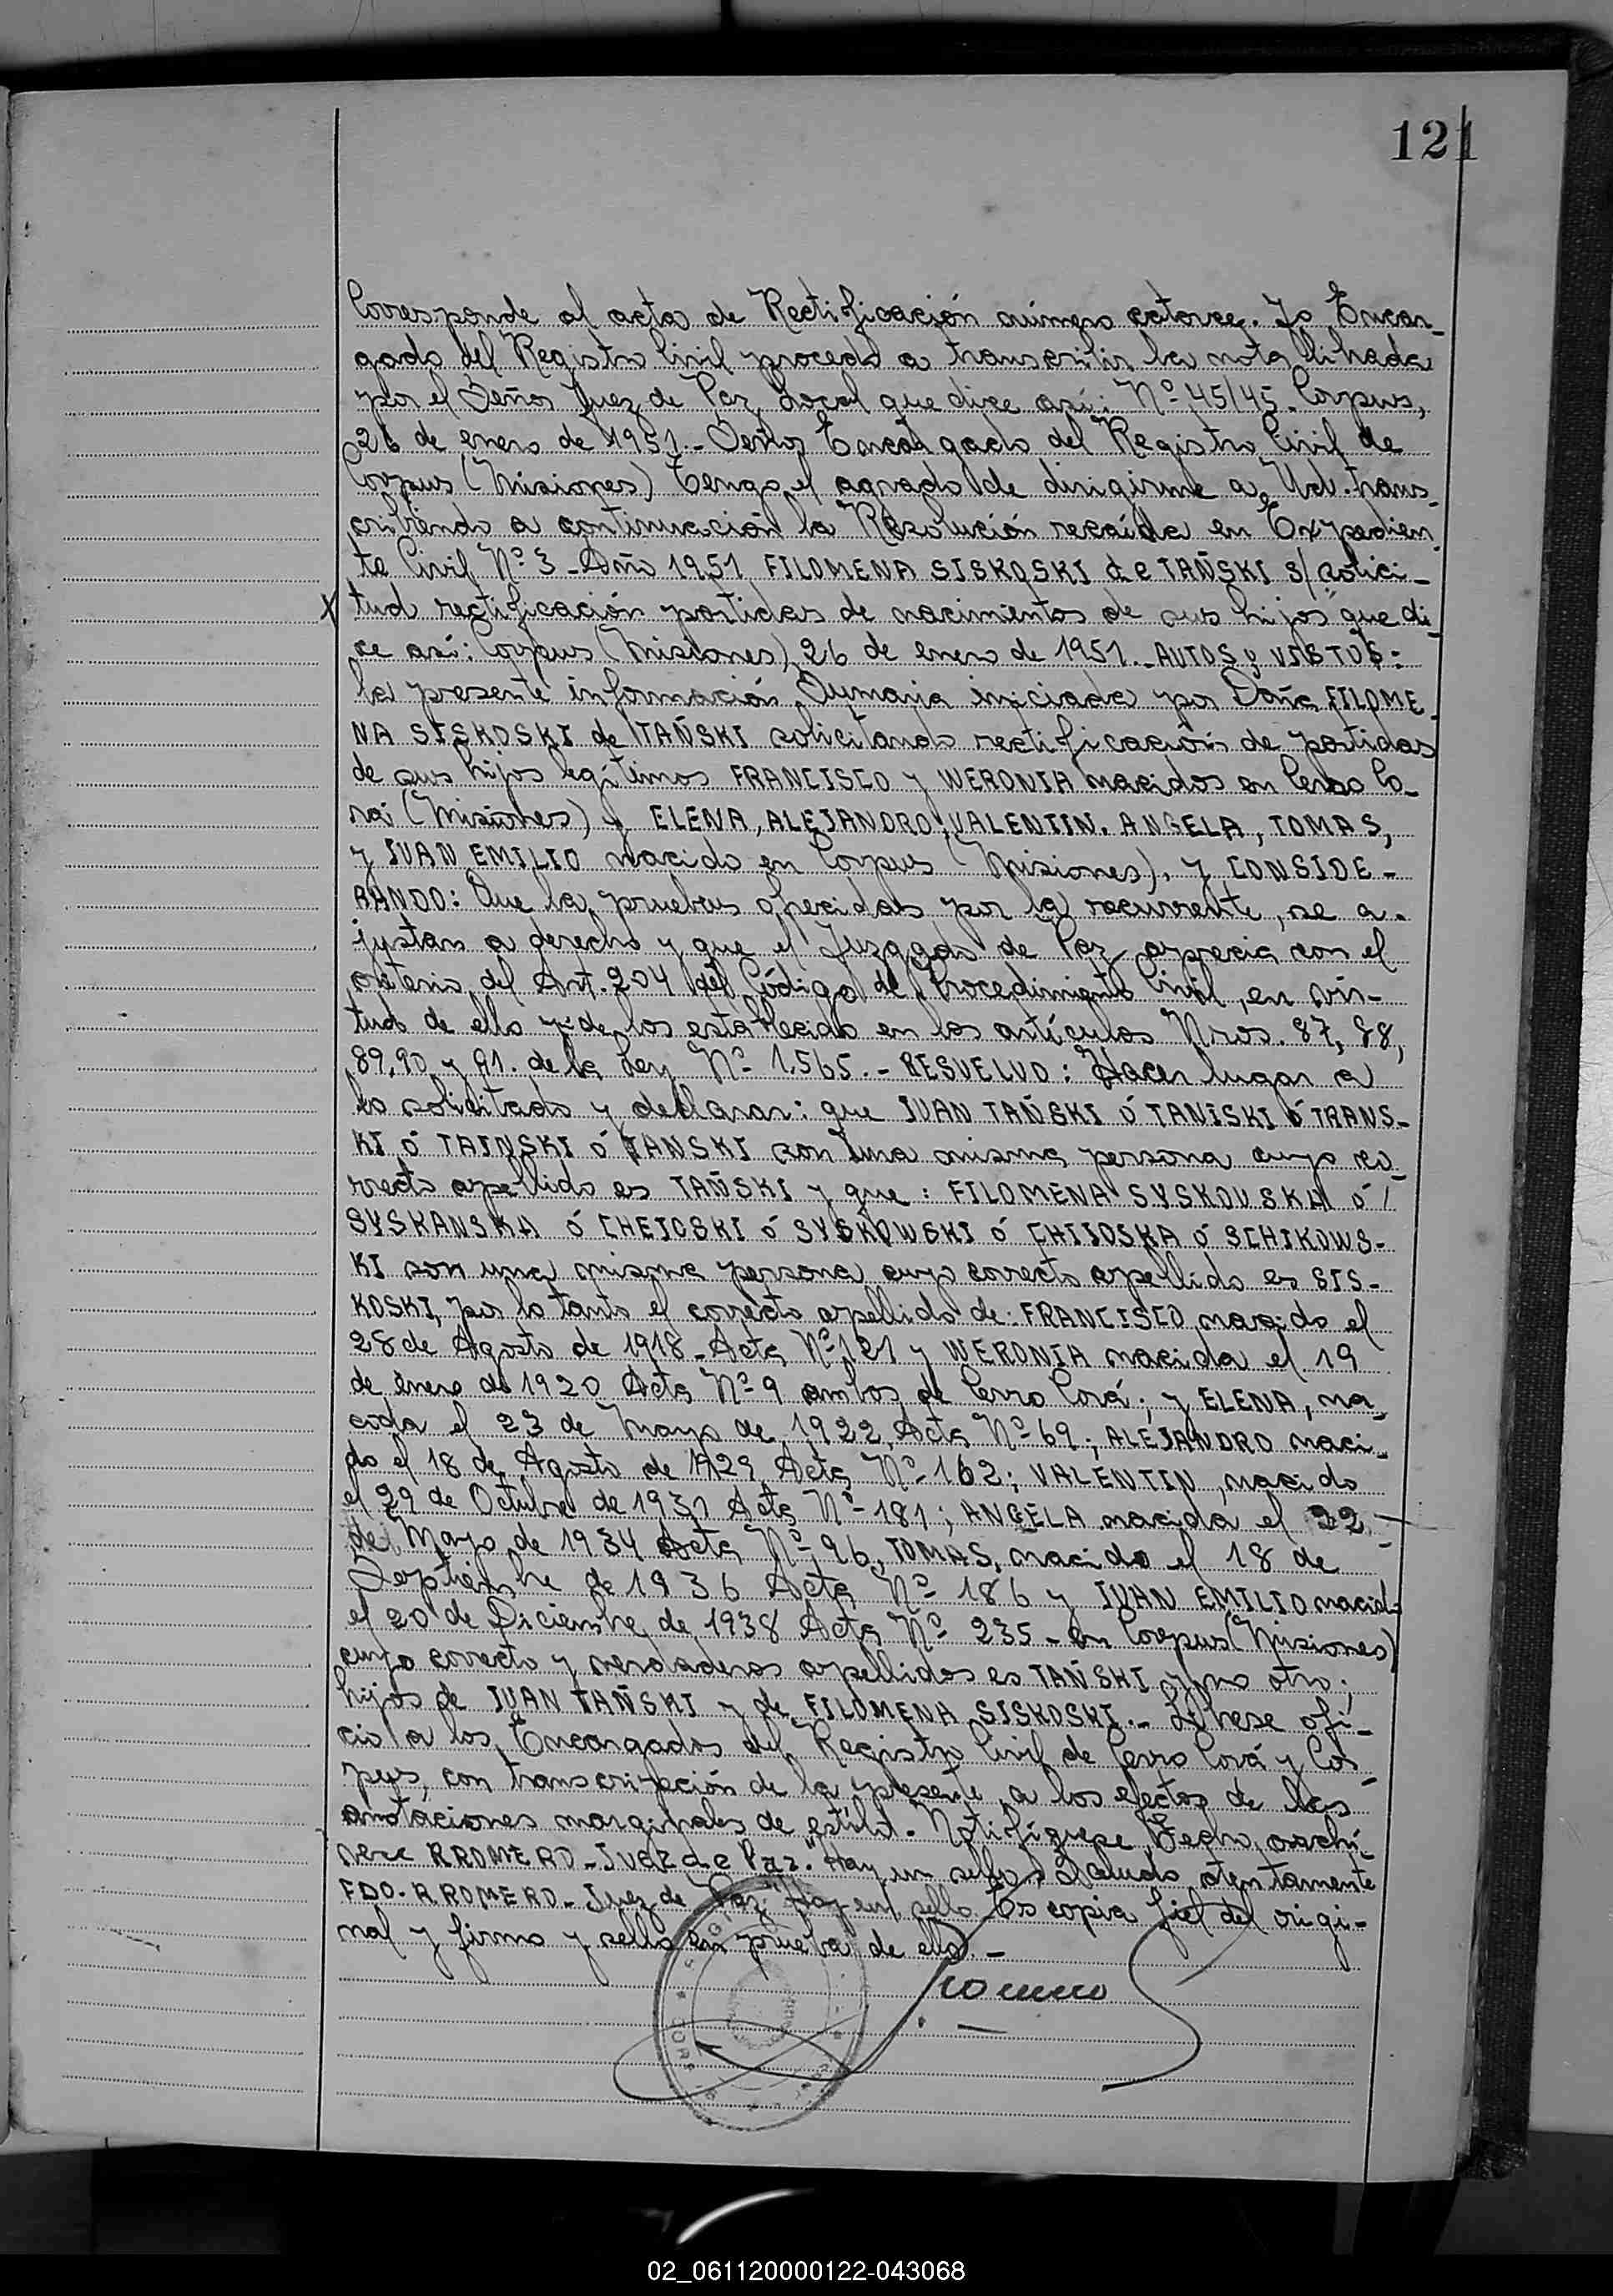 121
Corresponde al acta de Rectificación número catorce. Yo Encar-
gado del Registro Civil procedo a transcribir la nota librada
por el Señor Juez de Paz Local que dice así: Nº 45/45. Corpus,
26 de enero de 1951.- Señor Encargado del Registro Civil de
Corpus (Misiones) Tengo el agrado de dirigirme a Ud. trans-
cribiendo a continuación la Resolución recaída en Expedien-
te Civil Nº 3 - Año 1951 FILOMENA SISKOSKI de TAÑSKI S/ solici-
tud rectificación partidas de nacimientos de sus hijos" que di-
ce así: Corpus (Misiones), 26 de enero de 1951.- AUTOS y VISTOS:
la presente información Sumaria iniciada por Doña FILOME-
NA SISKOSKI de TAÑSKI solicitando rectificación de partidas
de sus hijos legítimos FRANCISCO y WERONIA nacidos en Cerro Co-
rá (Misiones) y ELENA, ALEJANDRO, VALENTIN. ANGELA, TOMAS,
y JUAN EMILIO nacido en Corpus (Misiones), y CONSIDE-
RANDO: Que la pruebas ofrecidas por la recurrente, se a-
justan a derecho y que el Juzgado de Paz aprecia con el
criterio del Art. 204 del Código de Procedimiento Civil, en vir-
tud de ello y de los establecido en los artículos Nros. 87, 88,
89, 90 y 91. de la Ley Nº 1.565.- RESUELVO: Hacer lugar a
lo solicitado y declarar: que JUAN TAÑSKI ó TANISKI ó TRANS-
KI ó TAINSKI ó TANSKI son una misma persona cuyo co-
rrecto apellido es TAÑSKI y que: FILOMENA SYSKOVSKA ó /
SYSKANSKA ó CHEJOSKI ó SYSKOWSKI ó CHIJOSKA ó SCHIKOWS-
KI son una misma persona cuyo correcto apellido es SIS-
KOSKI, por lo tanto el correcto apellido de: FRANCISCO nacido el
28 de Agosto de 1918 - Acta Nº 121 y WERONIA nacida el 19
de enero de 1920 Acta Nº 9 ambos de Cerro Corá; y ELENA, na-
cida el 23 de Mayo de 1922, Acta Nº 69; ALEJANDRO naci-
do el 18 de Agosto de 1929 Acta Nº 162; VALENTIN, nacido
el 29 de Octubre de 1931 Acta Nº 181; ANGELA nacida el 22
de Mayo de 1934 Acta Nº 96, TOMAS, nacido el 18 de
Septiembre de 1936 Acta Nº 186 y JUAN EMILIO nacido
el 20 de Diciembre de 1938 Acta Nº 235 - en Corpus (Misiones)
cuyo correcto y verdaderos apellidos es TAÑSKI y no otro;
hijos de JUAN TAÑSKI y de FILOMENA SISKOSKI.- Líbrese ofi-
cio a los Encargados del Registro Civil de Cerro Corá y Cor-
pus, con transcripción de la presente a los efectos de las
anotaciones marginales de estilo. Notifíquese, Fecho, archí-
vese R ROMERO - JUEZ de Paz." Hay un sello. Saludo atentamente
FDO. R ROMERO - Juez de Paz." Hay un sello. Es copia fiel del origi-
nal y firmo y sello en prueba de ello.-
Romero
02_061120000122-043068